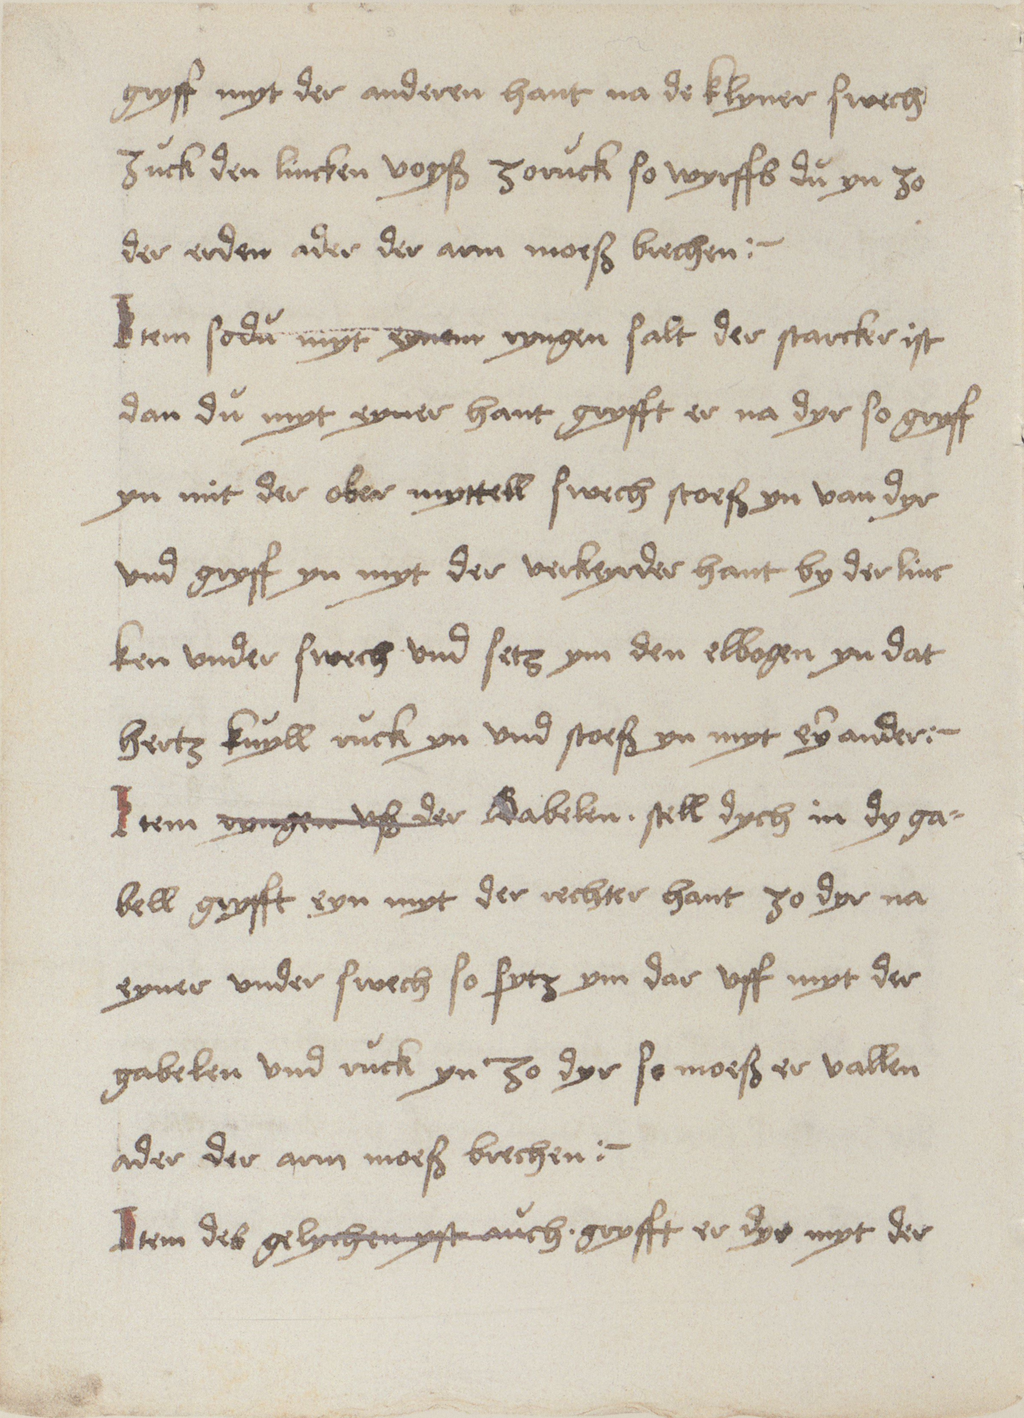 gryff myt der anderen hant na de klyner swech
zuck den lincken voyß zoruck so wyrffs dů yn zo
der erden ader der arm moeß brechen :~
Item so dů myt eynem ryngen salt der starcker ist
dan dů myt eyner hant gryfft er na dyr so gryff
yn mit der ober myttell swech stoeß yn van dyr
vnd gryff yn myt der verkeyrder hant by der linc
ken vnder swech vnd setz ym den elbogen yn dat
hertz kuyll ruck yn vnd stoeß yn myt eÿ ander :~
Item ryngen vß der Gabelen · stell dych in dy ga-
bell gryfft eyn myt der rechter hant zo dyr na
eyner vnder swech so sytz ym dar vff myt der
gabelen vnd ruck yn zo dyr so moeß er vallen
ader der arm moeß brechen :~
Item des gelychen yst auch · gryfft er dyr myt der